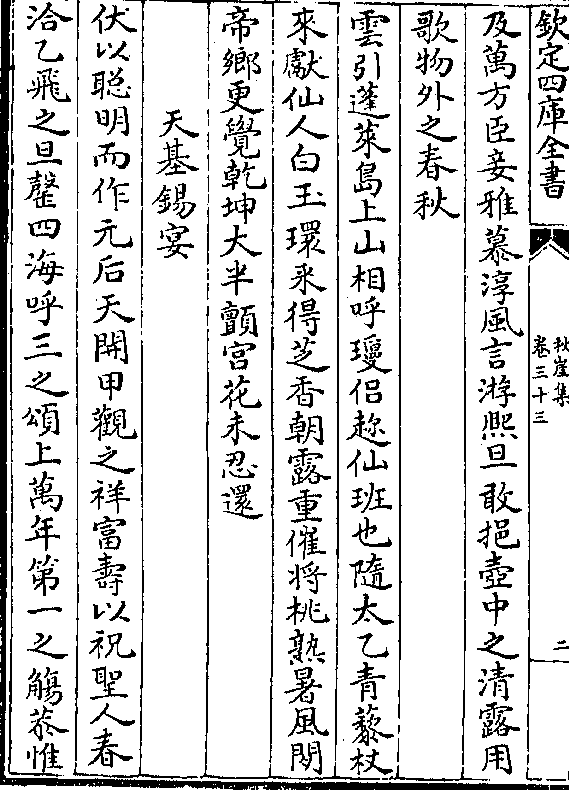 欽定四庫全書
秋崖集
卷三十三
二
及萬方臣妾雅慕淳風言游熙旦敢挹壺中之清露用
歌物外之春秋
雲引蓬萊島上山相呼瓊侣趂仙班也隨太乙青藜杖
來獻仙人白玉環采得芝香朝露重催將桃熟暑風閒
帝鄉更覺乾坤大半顫宫花未忍還
天基錫宴
伏以聪明而作元后天開甲觀之祥富壽以祝聖人春
洽乙飛之旦罄四海呼三之頌上萬年第一之觴恭惟